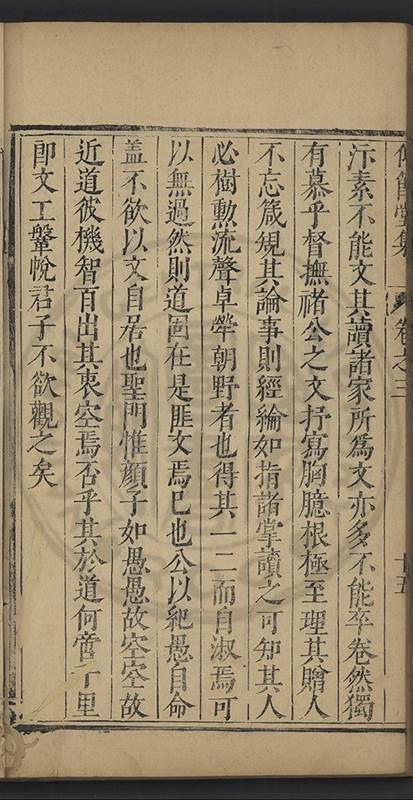 仰節堂集 卷之三 十五
汴素不能文其讀諸家所爲文亦多不能卒卷然獨
有慕乎督撫褚公之文抒寫胸臆根極至理其贈人
不忘箴規其論事則經綸如指諸掌讀之可知其人
必樹勲流聲卓犖朝野者也得其一二而自淑焉可
以無過然則道固在是匪文焉已也公以紀愚自命
盖不欲以文自居也聖門惟顔子如愚愚故空空故
近道彼機智百出其衷空焉否乎其於道何啻千里
即文工鞶帨君子不欲觀之矣